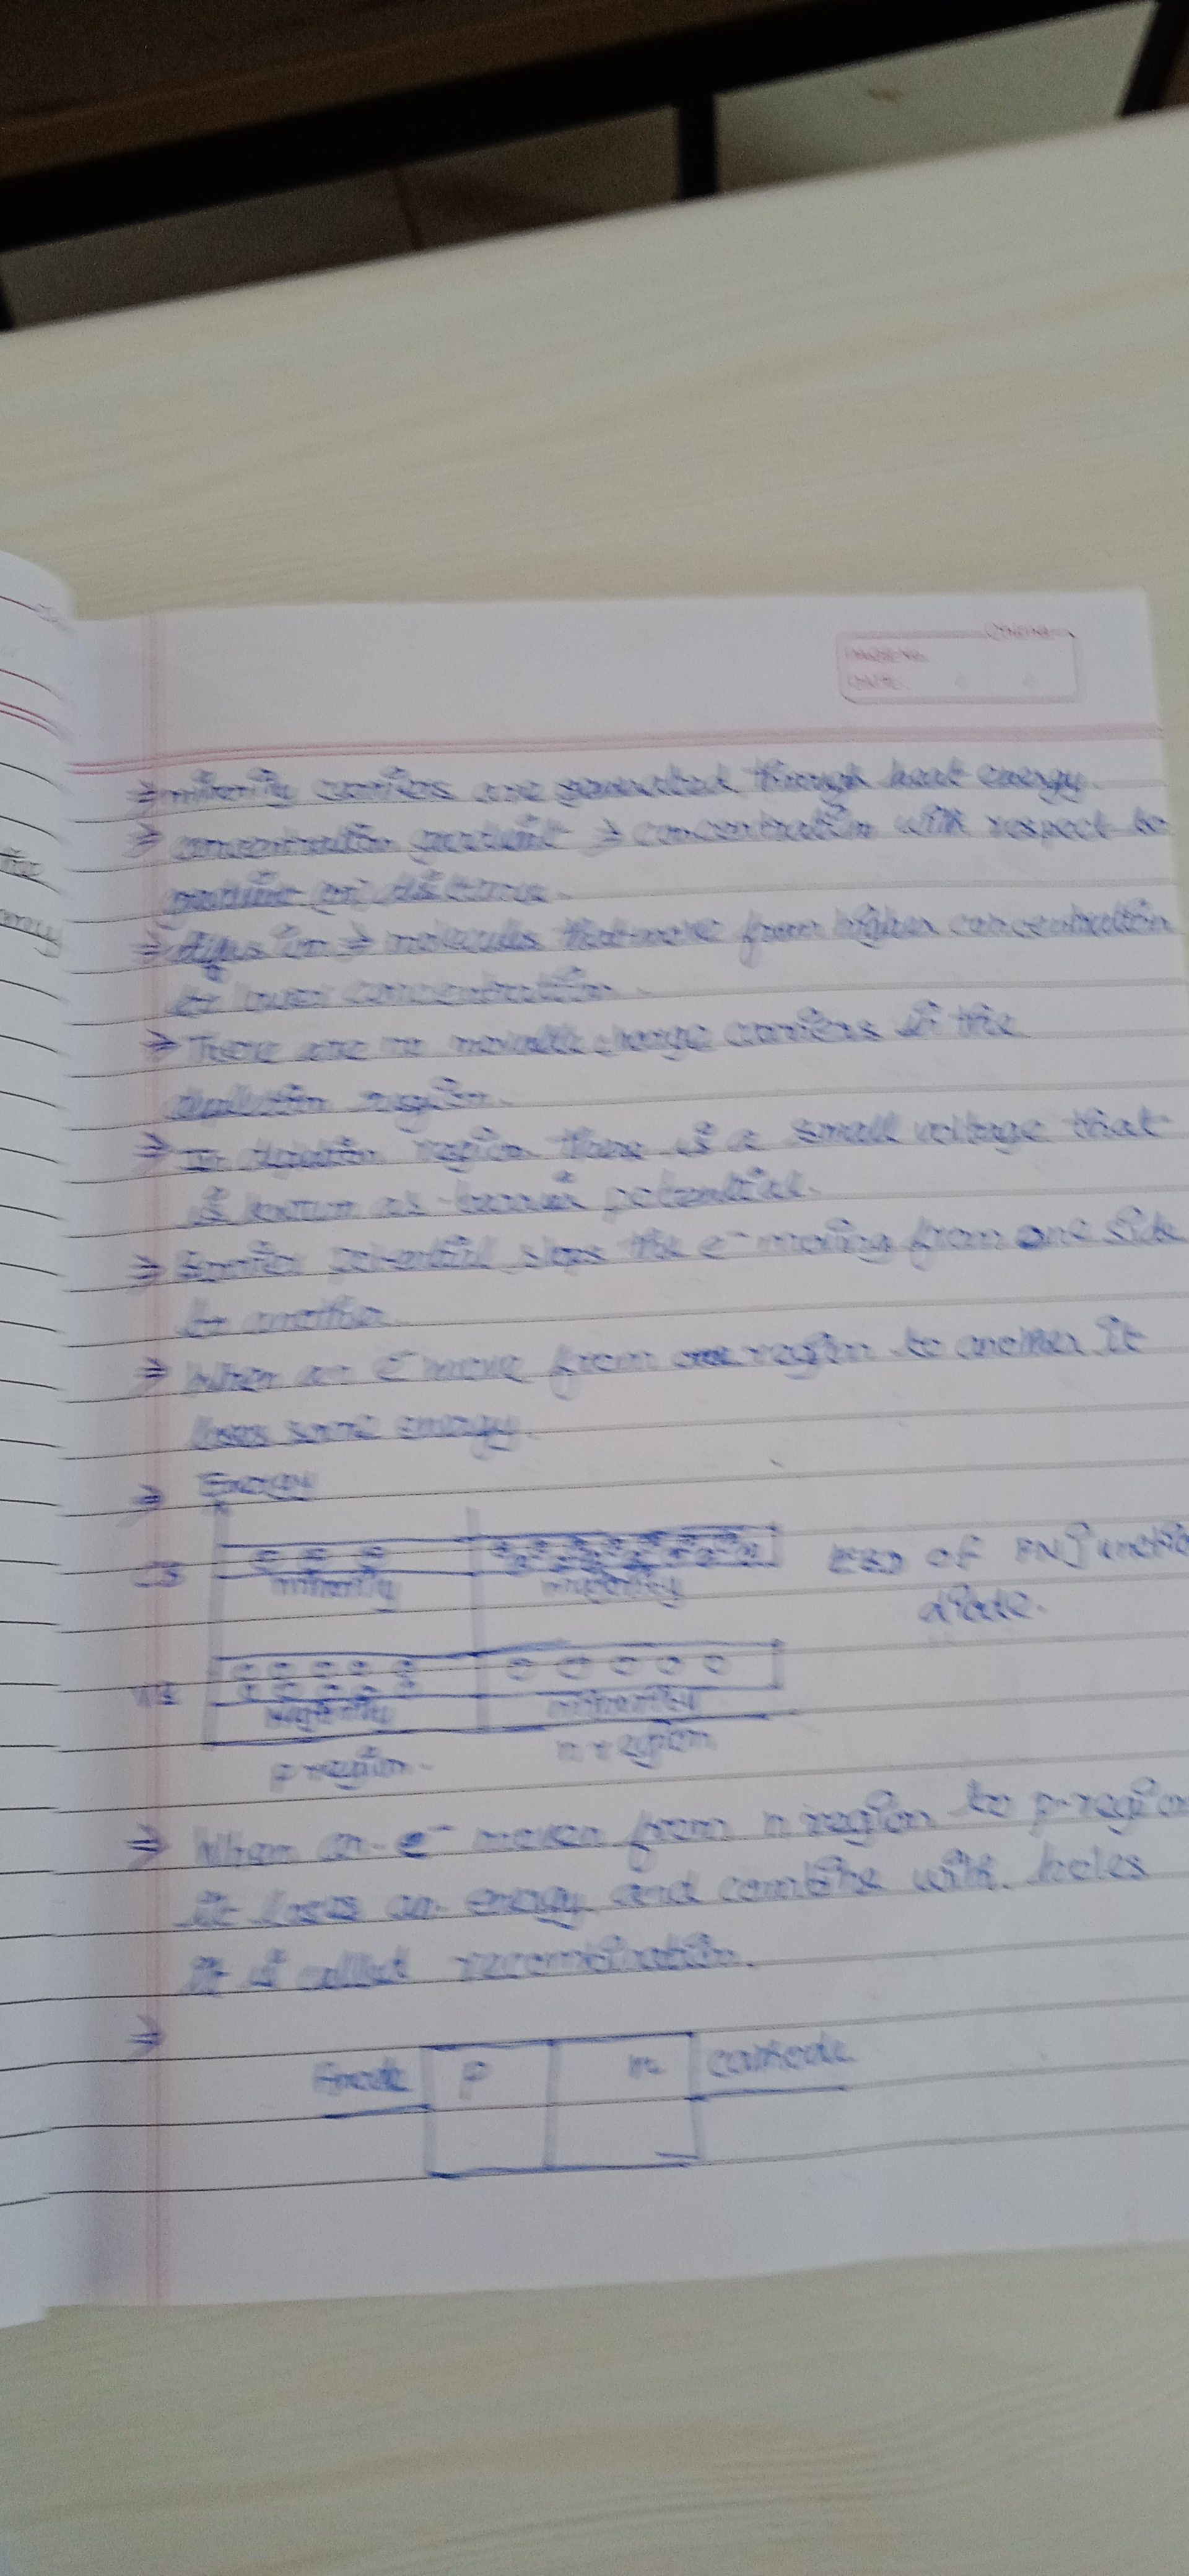 ⇒ minority carriers are generated through heat energy.
⇒ concentration gradient → concentration with respect to
⇒ diffusion → molecules that move from higher concentration
to lower concentration.
⇒ There are no movable charge carriers in the
depletion region.
⇒ In depletion region there is a small voltage that
is known as barrier potential.
⇒ Barrier potential stops the e⁻ moving from one side
to another.
⇒ When an e⁻ move from one region to another it
loses some energy.
⇒ Energy
CB
minority majority
EBD of PN junction
diode.
VB
majority minority
p region. n region
⇒ When an e⁻ moves from n region to p-region
it loses an energy and combine with holes
it is called recombination.
⇒
Anode P n cathode